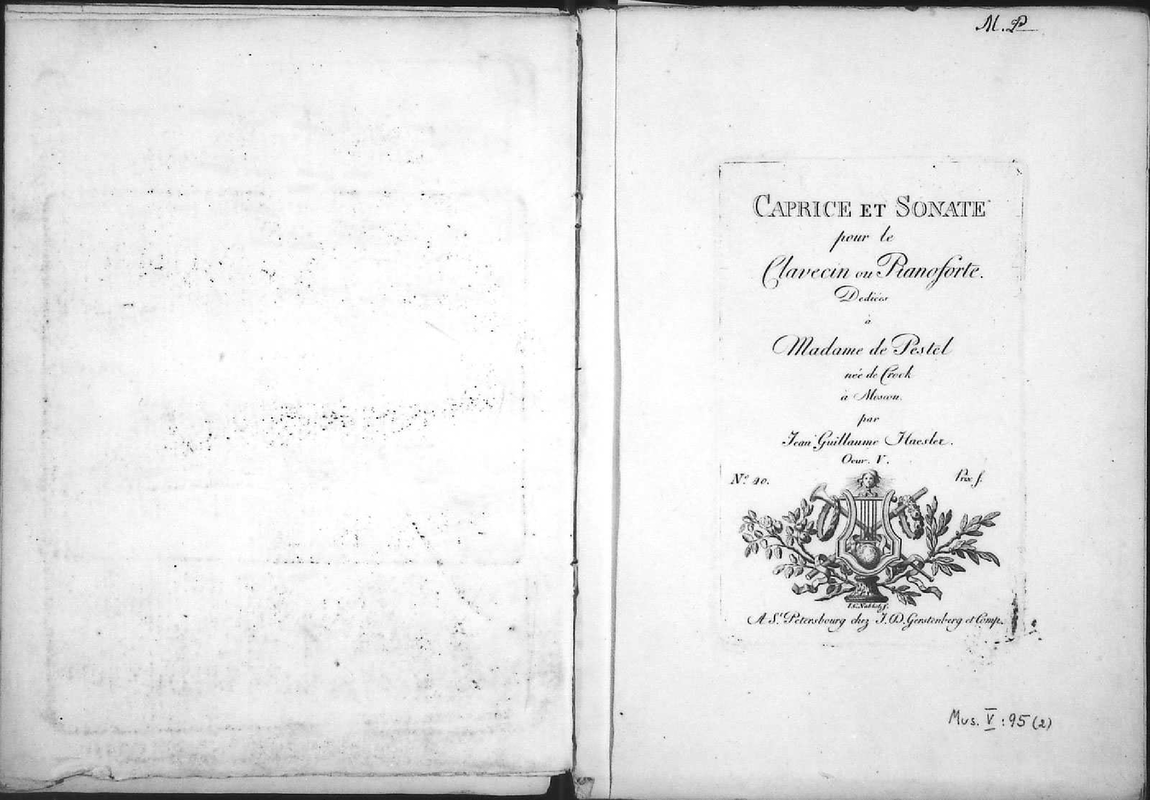 M. P
CAPRICE ET SONATE
pour le
Clavecin ou Pianoforte.
Dediées
à
Madame de Pestel
née de Crock
à Moscou.
par
Jean Guillaume Haesler.
Oeuv. V.
No. 40. Prix f.
A St. Petersbourg chez J. D. Gerstenberg et Comp.
Mus. V : 95 (2)